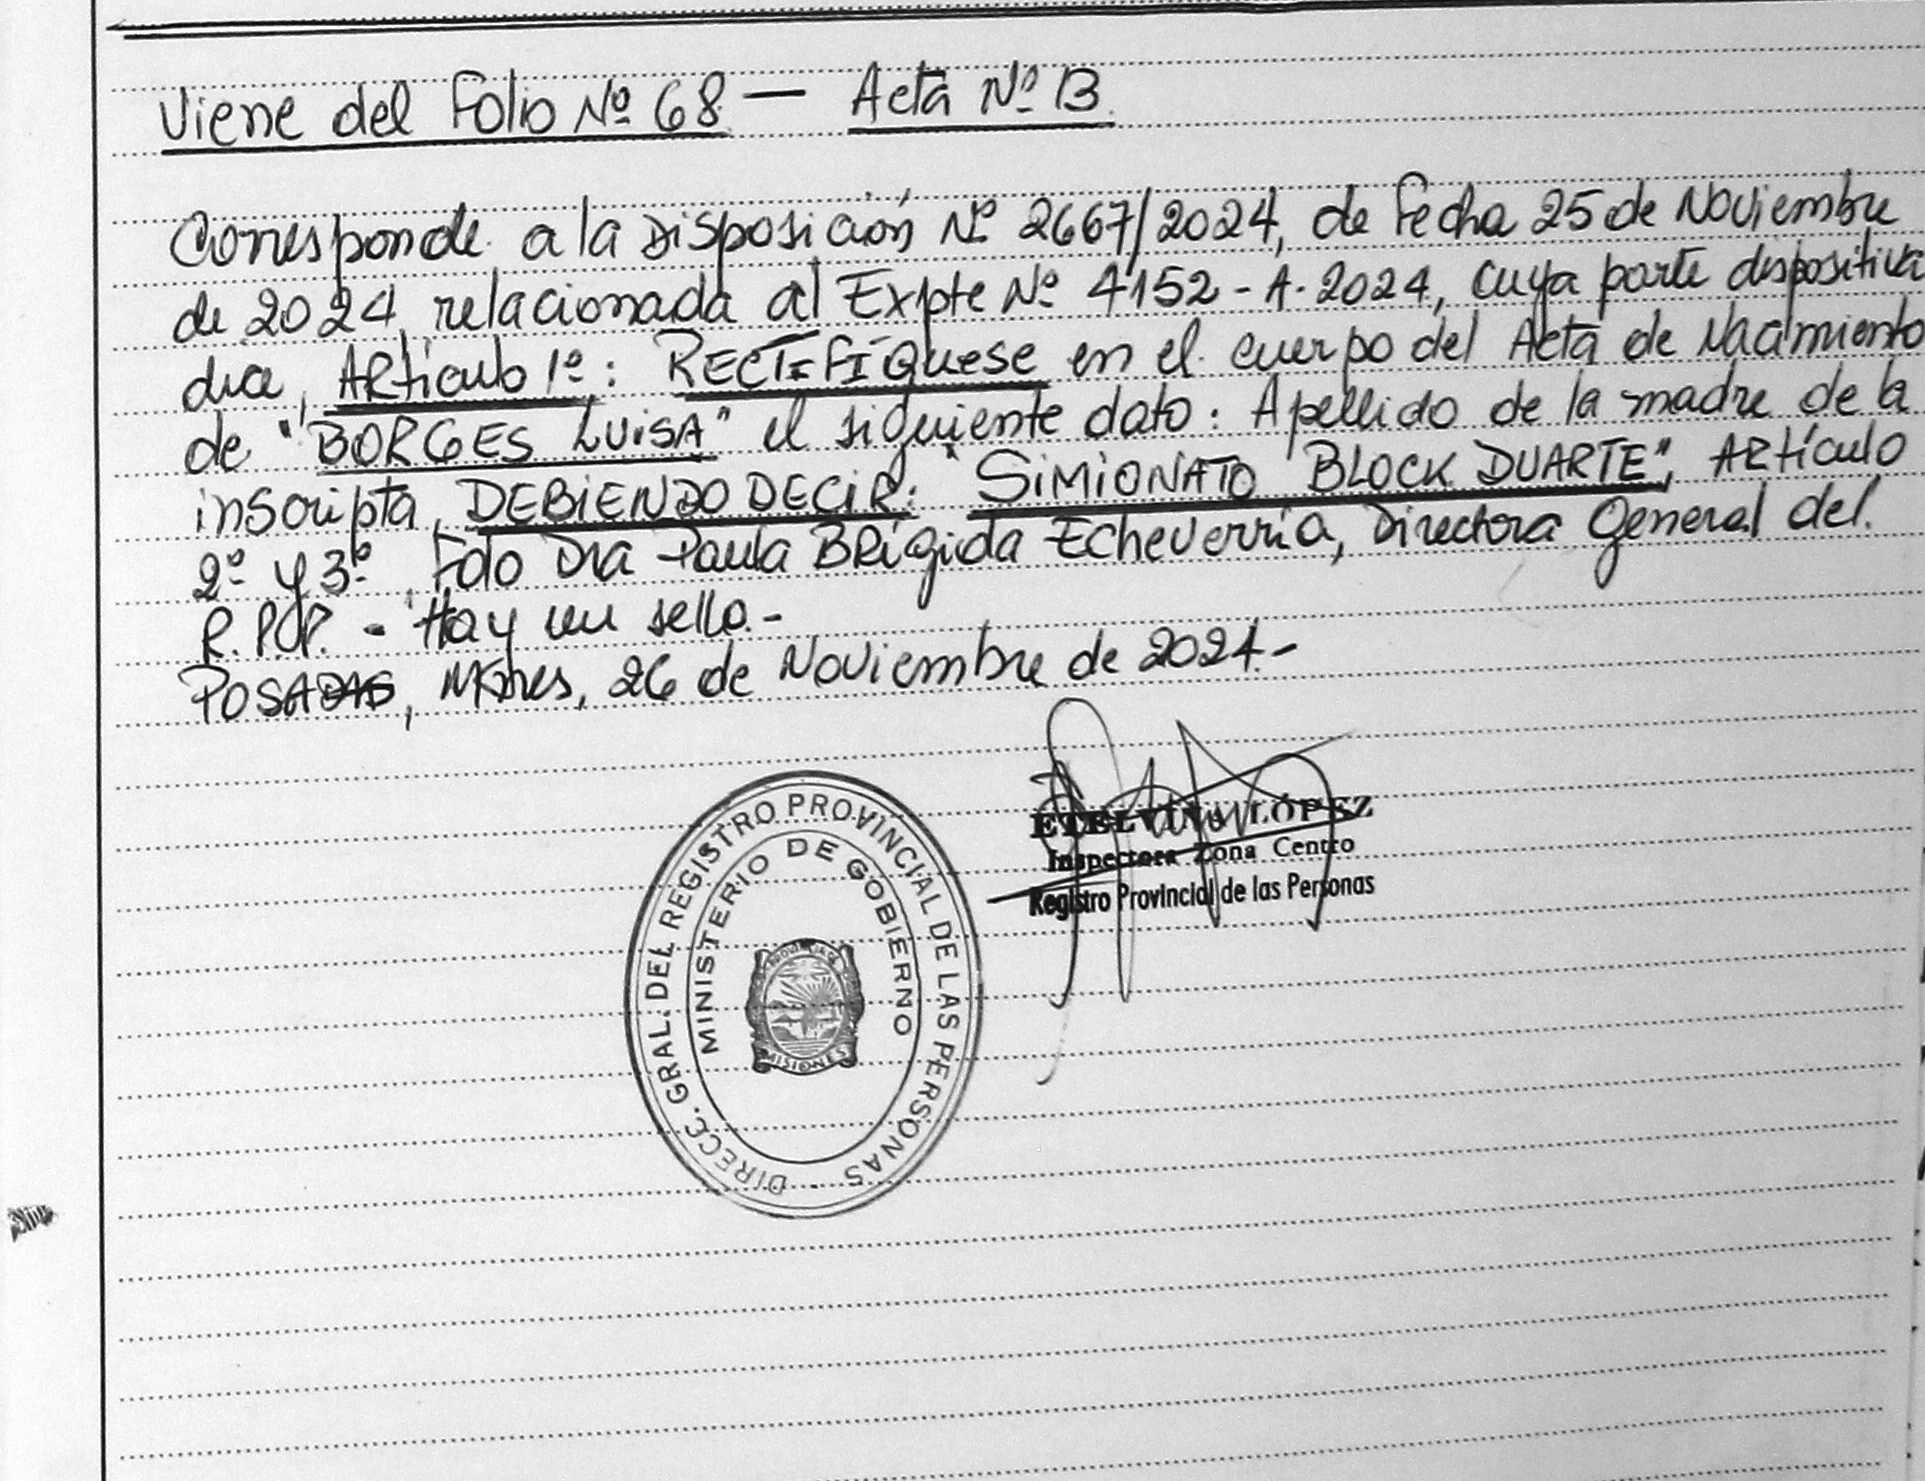 Viene del Folio Nº 68 — Acta Nº 13
Corresponde a la Disposición Nº 2667/2024, de Fecha 25 de Noviembre
de 2024, relacionada al Expte Nº 4152-A-2024, cuya parte dispositiva
dice, Artículo 1º: RECTIFÍQUESE en el cuerpo del Acta de Nacimiento
de "BORGES LUISA" el siguiente dato: Apellido de la madre de la
inscripta, DEBIENDO DECIR: "SIMIONATO BLOCK DUARTE", Artículo
2º y 3º. Fdo Dra Paula Brígida Echeverría, Directora General del
R.P.P. - Hay un sello.-
POSADAS, Mnes, 26 de Noviembre de 2024.-
ETELVINA LÓPEZ
Inspectora Zona Centro
Registro Provincial de las Personas
DIRECC. GRAL. DEL REGISTRO PROVINCIAL DE LAS PERSONAS
MINISTERIO DE GOBIERNO
MISIONES